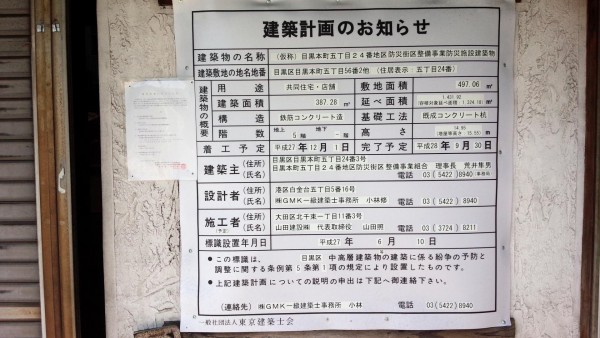 建築計画のお知らせ
建築物の名称 (仮称)目黒本町五丁目24番地区防災街区整備事業防災施設建築物
建築敷地の地名地番 目黒区目黒本町五丁目56番2他 (住居表示:五丁目24番)
建築物の概要
用途 共同住宅・店舗 敷地面積 497.06 ㎡
建築面積 387.28 ㎡ 延べ面積 1,431.92
(容積対象延べ面積 1,324.10) ㎡
構造 鉄筋コンクリート造 基礎工法 既成コンクリート杭
階数 地上 5階 地下 -階 高さ 14.95
(増築等高さ 15.55) m
着工予定 平成27年12月1日 完了予定 平成28年9月30日
建築主 (住所) 目黒区目黒本町五丁目24番3号
(氏名) 目黒区目黒本町五丁目24番地区防災街区整備事業組合 理事長 荒井隼男
電話 03(5422)8940 事務局
設計者 (住所) 港区白金台五丁目5番16号
(氏名) ㈱GMK一級建築士事務所 小林修 電話 03(5422)8940
施工者 (予定) (住所) 大田区北千束一丁目11番3号
(氏名) 山田建設㈱ 代表取締役 山田照 電話 03(3724)8211
標識設置年月日 平成27年 6月 10日
●この標識は、目黒区 中高層建築物の建築に係る紛争の予防と
調整に関する条例第5条第1項の規定により設置したものです。
●上記建築計画についての説明の申出は下記へ御連絡下さい。
(連絡先) ㈱GMK一級建築士事務所 小林 電話 03(5422)8940
一般社団法人東京建築士会